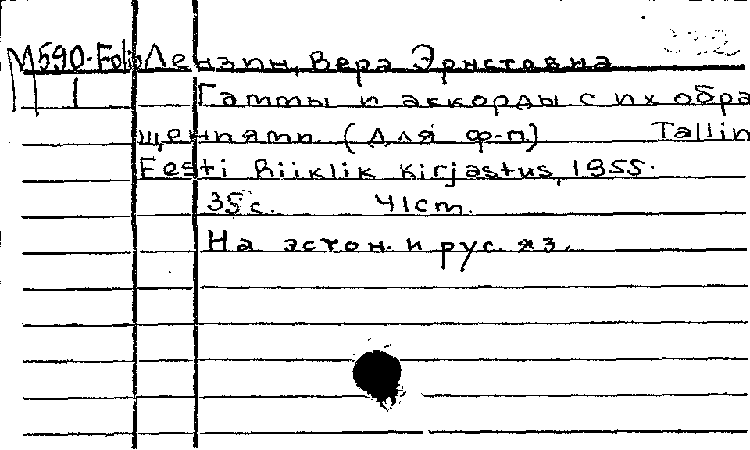 M590-Folio Лензин, Вера Эрнстовна
1 Гаммы и аккорды с их обра
щениями (для ф-п) Tallin
Eesti Riiklik Kirjastus, 1955.
35 с. 41cm.
На эстон. и рус. яз.